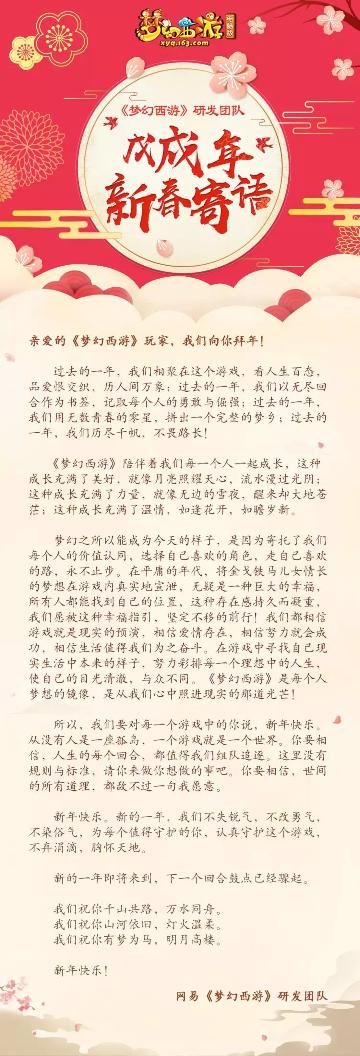 梦幻西游
电脑版
xyq.163.com
《梦幻西游》研发团队
戊戌年
新春寄语
亲爱的《梦幻西游》玩家，我们向你拜年！
过去的一年，我们相聚在这个游戏，看人生百态，
品爱恨交织，历人间万象；过去的一年，我们以无尽回
合作为书签，记取每个人的勇敢与倔强；过去的一年，
我们用无数青春的零星，拼出一个完整的梦乡；过去的
一年，我们历尽千帆，不畏路长！
《梦幻西游》陪伴着我们每一个人一起成长，这种
成长充满了美好，就像月亮照耀天心，流水漫过光阴；
这种成长充满了力量，就像无边的雪夜，醒来却天地苍
茫；这种成长充满了温情，如逢花开，如瞻岁新。
梦幻之所以能成为今天的样子，是因为寄托了我们
每个人的价值认同，选择自己喜欢的角色，走自己喜欢
的路，永不止步。在平庸的年代，将金戈铁马儿女情长
的梦想在游戏内真实地宣泄，无疑是一种巨大的幸福，
所有人都能找到自己的位置，这种存在感持久而凝重，
我们愿被这种幸福指引，坚定不移的前行！我们都相信
游戏就是现实的预演，相信爱情存在，相信努力就会成
功，相信生活值得我们为之奋斗。在游戏中寻找自己现
实生活中本来的样子，努力彩排每一个理想中的人生，
使自己的目光清澈，与众不同。《梦幻西游》是每个人
梦想的镜像，是从我们心中照进现实的那道光芒！
所以，我们要对每一个游戏中的你说，新年快乐。
从没有人是一座孤岛，一个游戏就是一个世界。你要相
信，人生的每个回合，都值得我们组队追逐。这里没有
规则与标准，请你来做你想做的事吧。你要相信，世间
的所有道理，都敌不过一句我愿意。
新年快乐。新的一年，我们不失锐气，不改勇气，
不染俗气，为每个值得守护的你，认真守护这个游戏，
不弃涓滴，胸怀天地。
新的一年即将来到，下一个回合鼓点已经骤起。
我们祝你千山共路，万水同舟。
我们祝你山河依旧，灯火温柔。
我们祝你有梦为马，明月高楼。
新年快乐！
网易《梦幻西游》研发团队